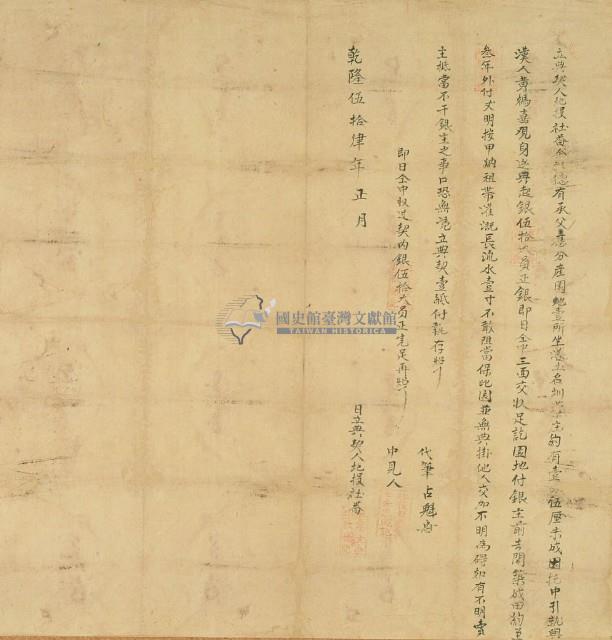 立典契人北投社番 有承父 分產園地壹所坐落土名圳 約有壹 伍厘未成園托中引就與
漢人 觀身送典起銀伍拾大員正銀即日仝中三面交收足訖園地付銀主前去開築成田約
叁年外付丈明按甲納租帶灌溉長流水壹寸不敢阻當保此園並無典掛他人交加不明為碍如有不明賣
主抵當不干銀主之事口恐無憑立典契壹紙付執存照
即日仝中收過契內銀伍拾大員正完足再照
代筆
中見人
乾隆伍拾肆年正月 日立典契人北投社番
國史館臺灣文獻館
TAIWAN HISTORICA